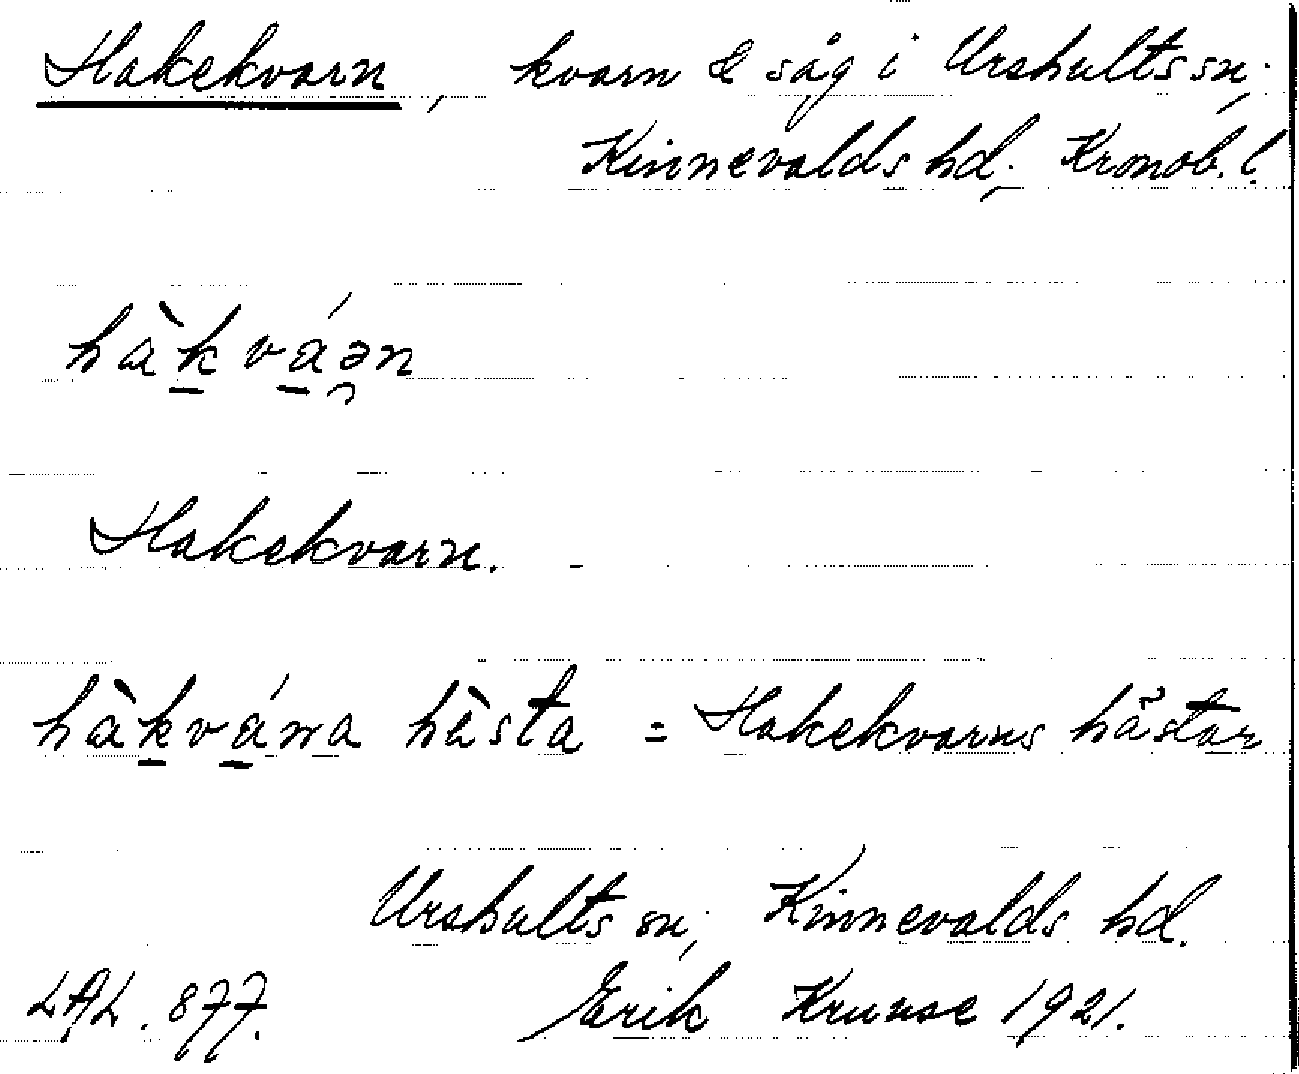 Hakekvarn, kvarn & såg i Urshults sn;
Kinnevalds hd; Kronob. l.
hàk̲vá̲ə̯n
Hakekvarn.
hàk̲vá̲na hàsta = Hakekvarns hästar
Urshults sn; Kinnevalds hd.
LAL. 877. Erik Kruuse 1921.